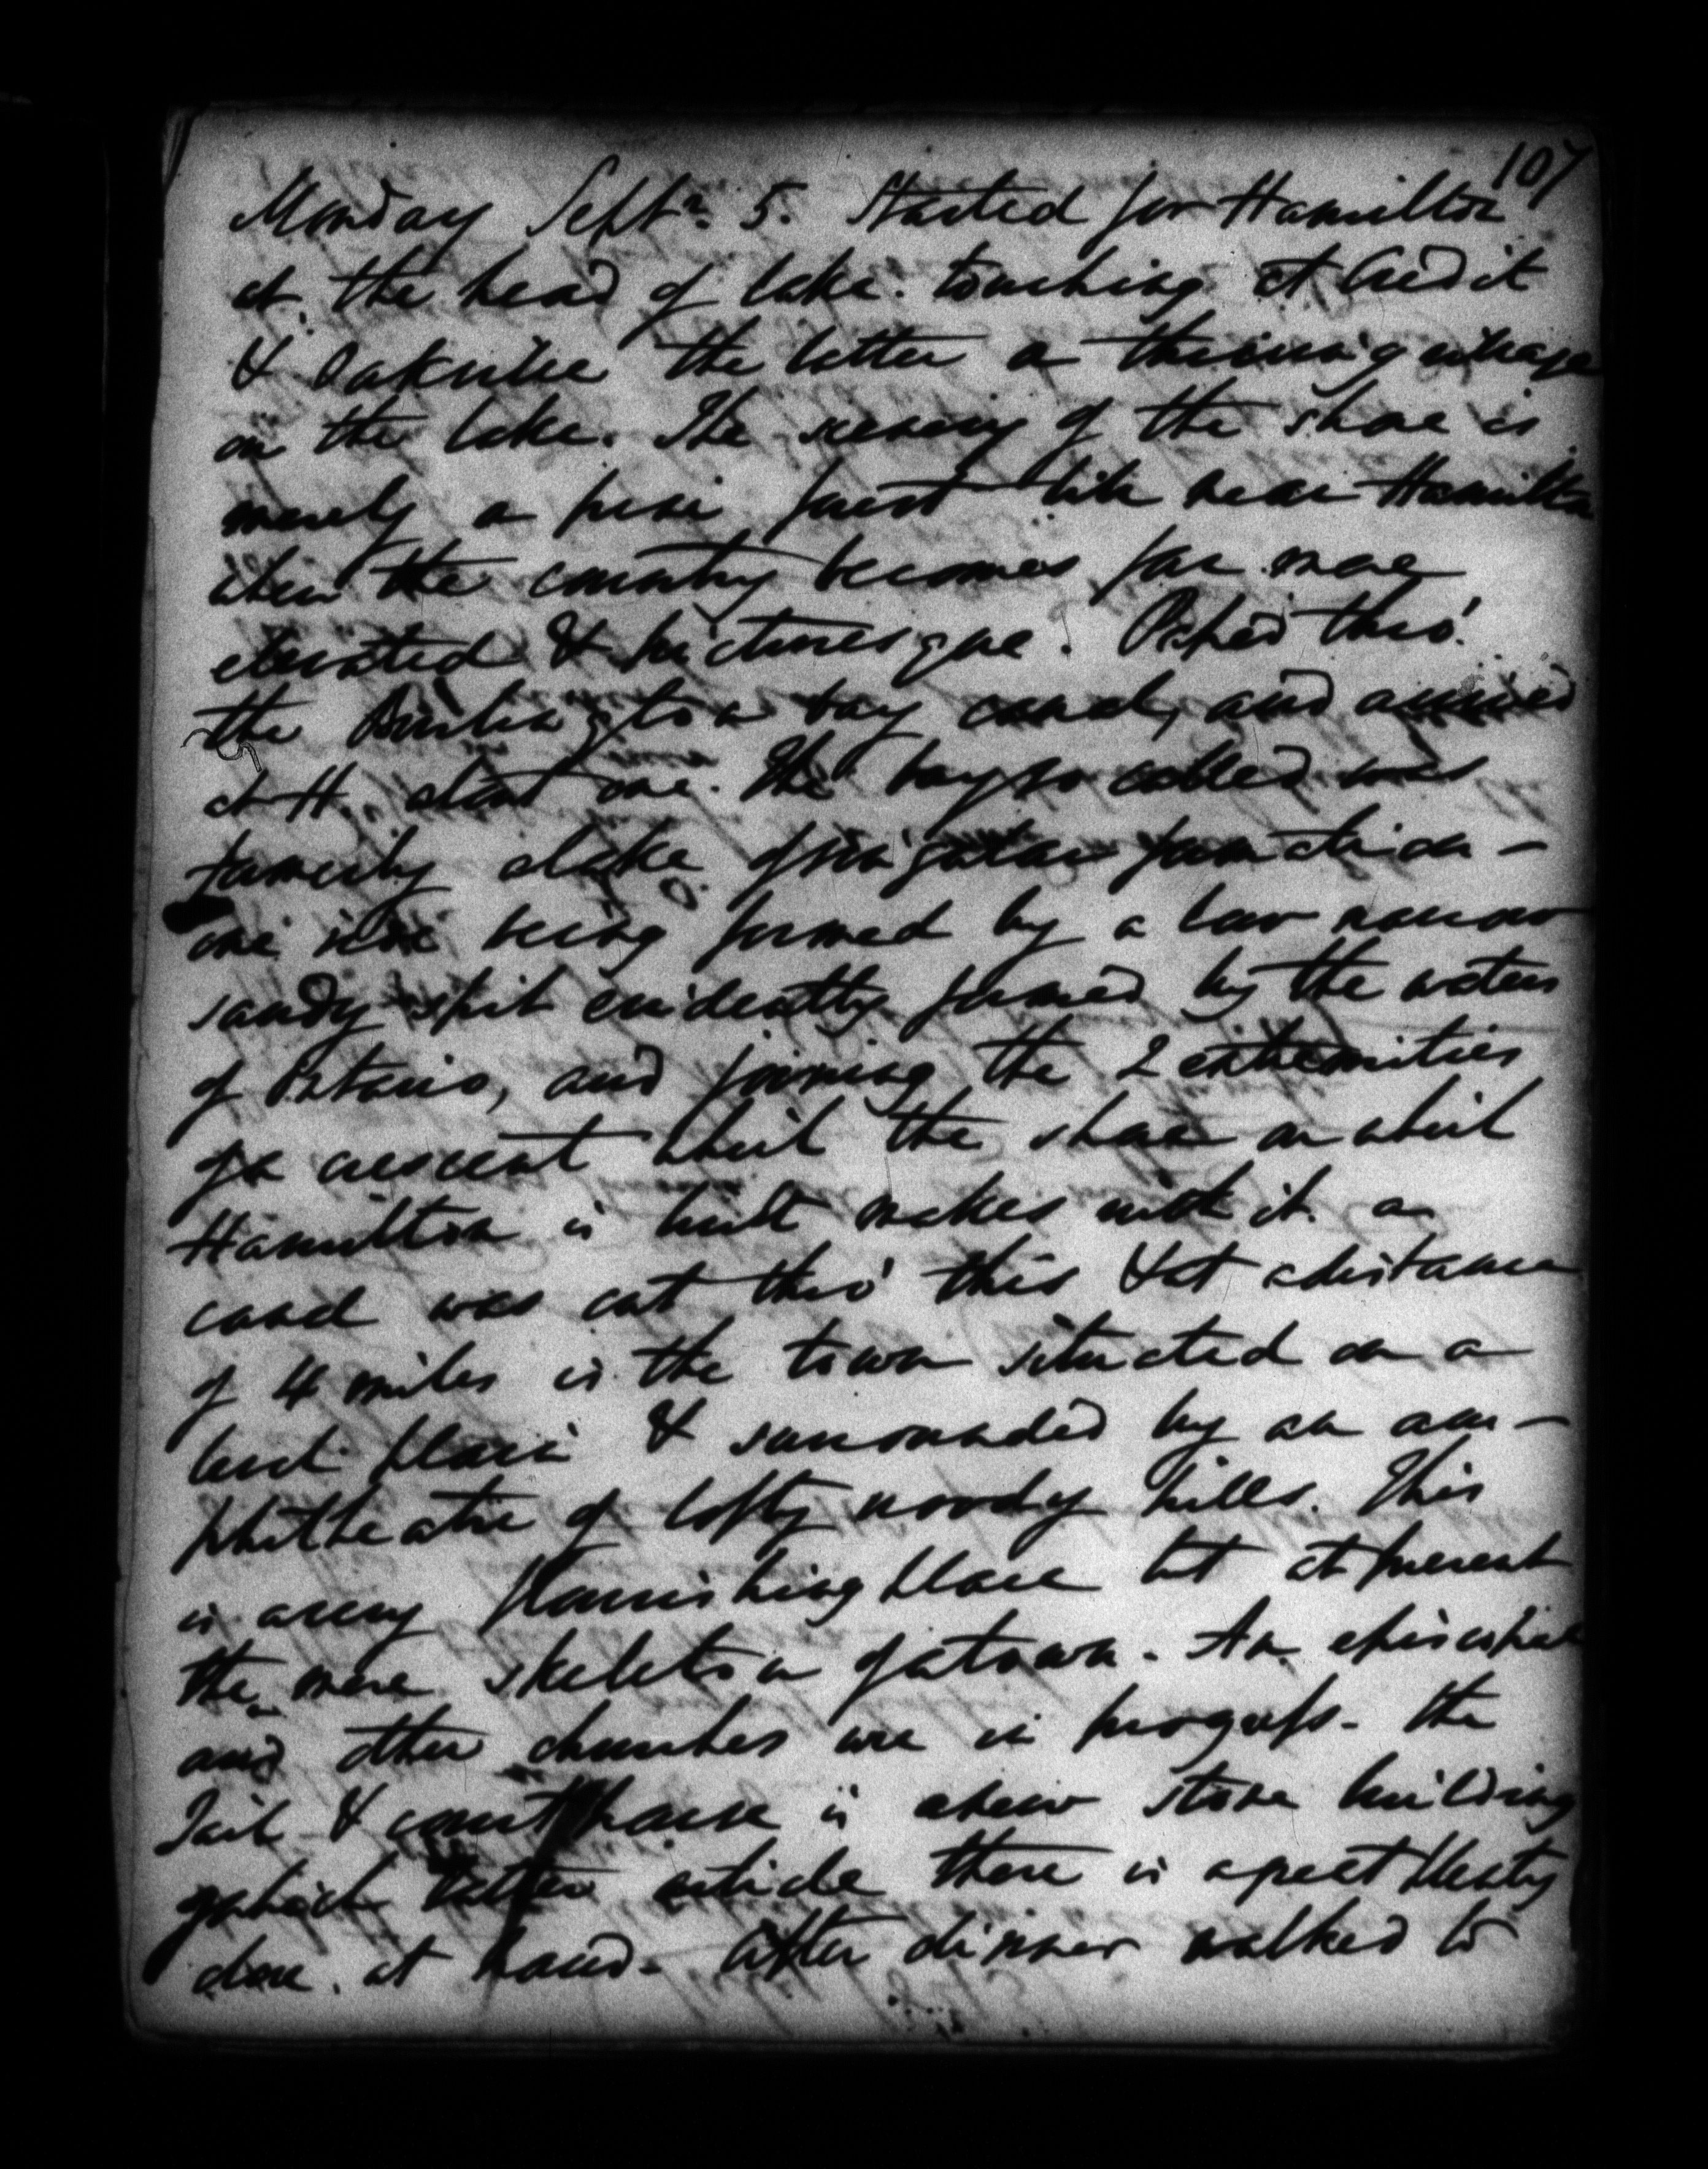 107
Monday Septr. 5. Started for Hamilton
at the head of lake. touching at Credit
& Oakville the latter a thriving village
on the lake. The scenery of the shore is
merely a pine forest till near Hamilton
when the country becomes far more
elevated & picturesque. Passed thro'
the Burlington bay canal, and arrived
at H. about one. The bay so called was
formerly a lake of singular formation -
one side being formed by a low narrow
sandy spit evidently formed by the waters
of Ontario, and joining the 2 extremities
of a crescent which the shore on which
Hamilton is built makes with it. a
canal was cut thro' this & at a distance
of 4 miles is the town situated on a
level plain & surrounded by an am-
phitheatre of lofty woody hills. This
is a very flourishing place but at present
the mere skeleton of a town. An episcopal
and other churches are in progress - the
Jail & court house is a new stone building
of which latter article there is a great plenty
close at hand - After dinner walked to